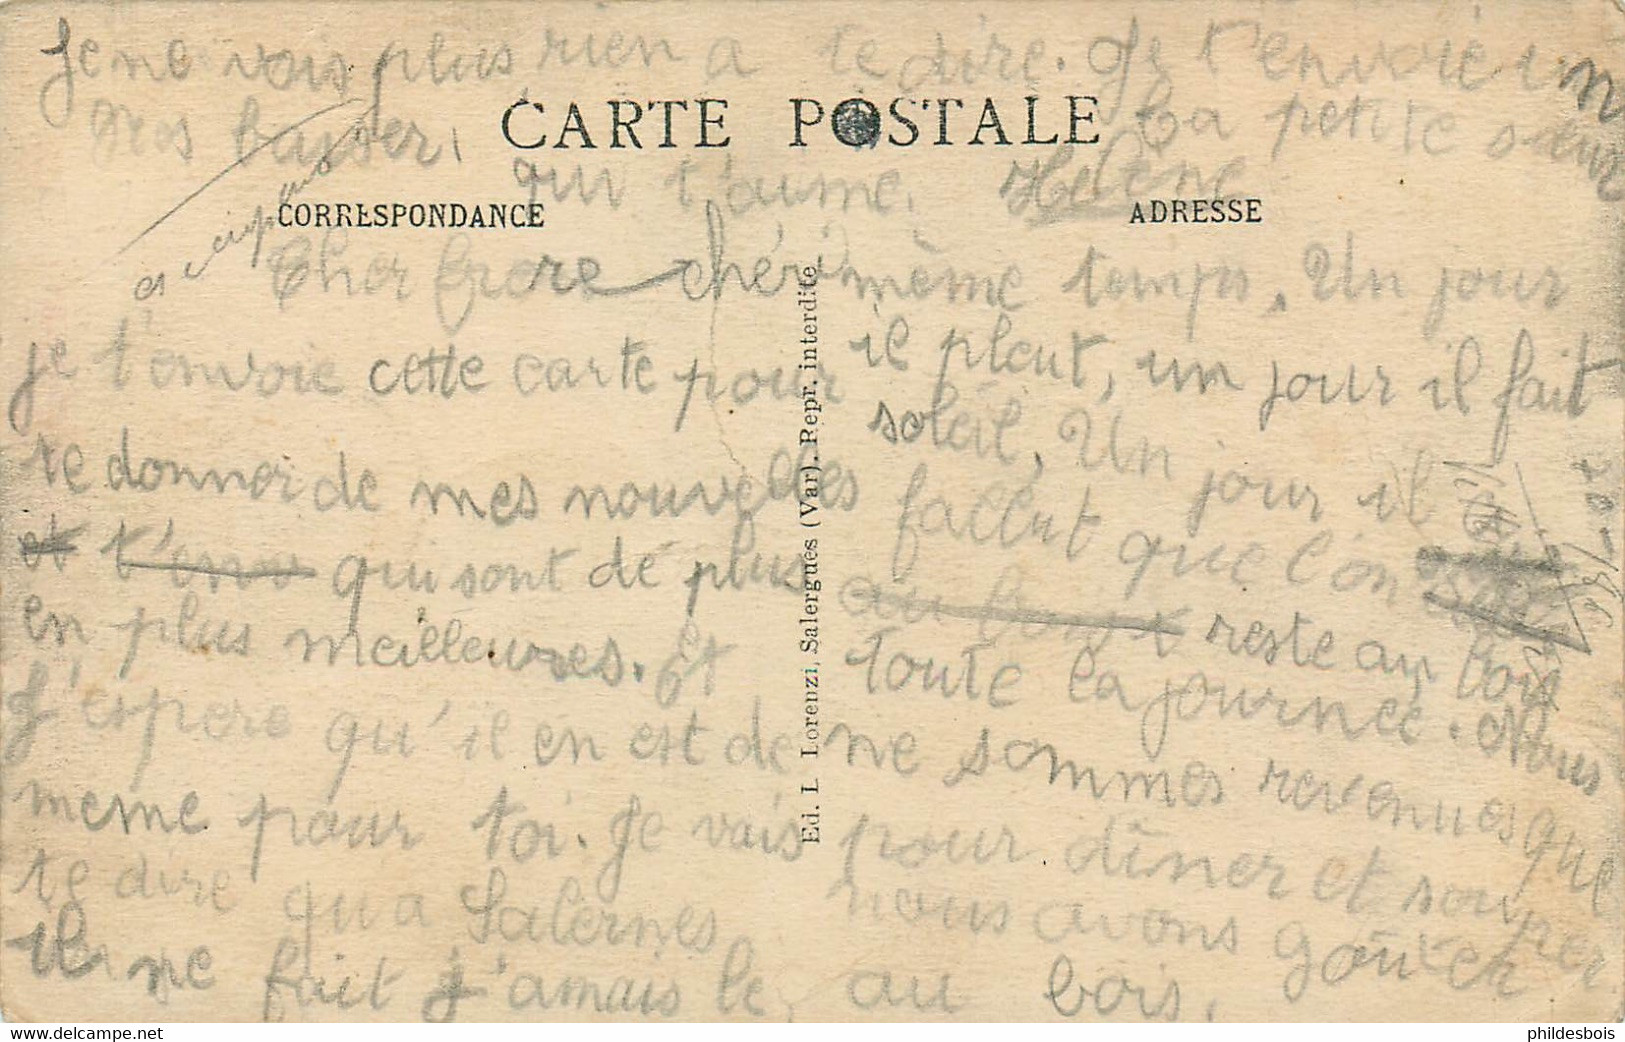 Je ne vois plus rien a te dire. Je t'envoie un
gros baiser. Ta petite sœur
CARTE POSTALE
qui t'aime. Hélène
CORRESPONDANCE
ADRESSE
Cher frere chéri
je t'envoie cette carte pour
te donner de mes nouvelles
et t'env qui sont de plus
en plus meilleures. Et
J'espere qu'il en est de
meme pour toi. Je vais
te dire qu'a Salernes
il ne fait j'amais le
Ed. L. Lorenzi, Salergues (Var). Repr. interdite
même temps. Un jour
il pleut, un jour il fait
soleil. Un jour il
fallut que l'on
au bois reste au bois
toute la journée. Nous
ne sommes revenues que
pour dîner et souper
nous avons goûter
au bois.
phildesbois